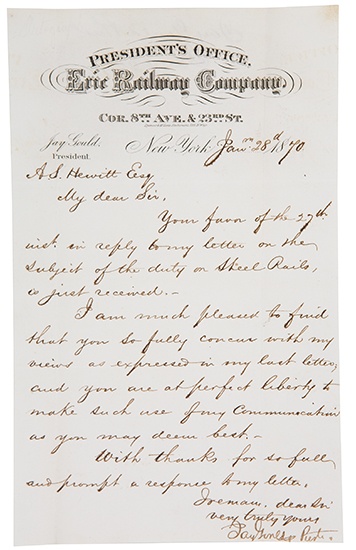 PRESIDENT'S OFFICE,
Erie Railway Company,
COR. 8TH AVE. & 23RD ST.
Jay Gould,
President.
New York, Jany 28th 1870
A. S. Hewitt Esq
My dear Sir,
Your favor of the 27th
inst. in reply to my letter on the
subject of the duty on Steel Rails,
is just received.-
I am much pleased to find
that you so fully concur with my
views as expressed in my last letter,
and you are at perfect liberty to
make such use of my Communication
as you may deem best.-
With thanks for so full
and prompt a response to my letter,
I remain, dear Sir
very truly yours
Jay Gould Prest.